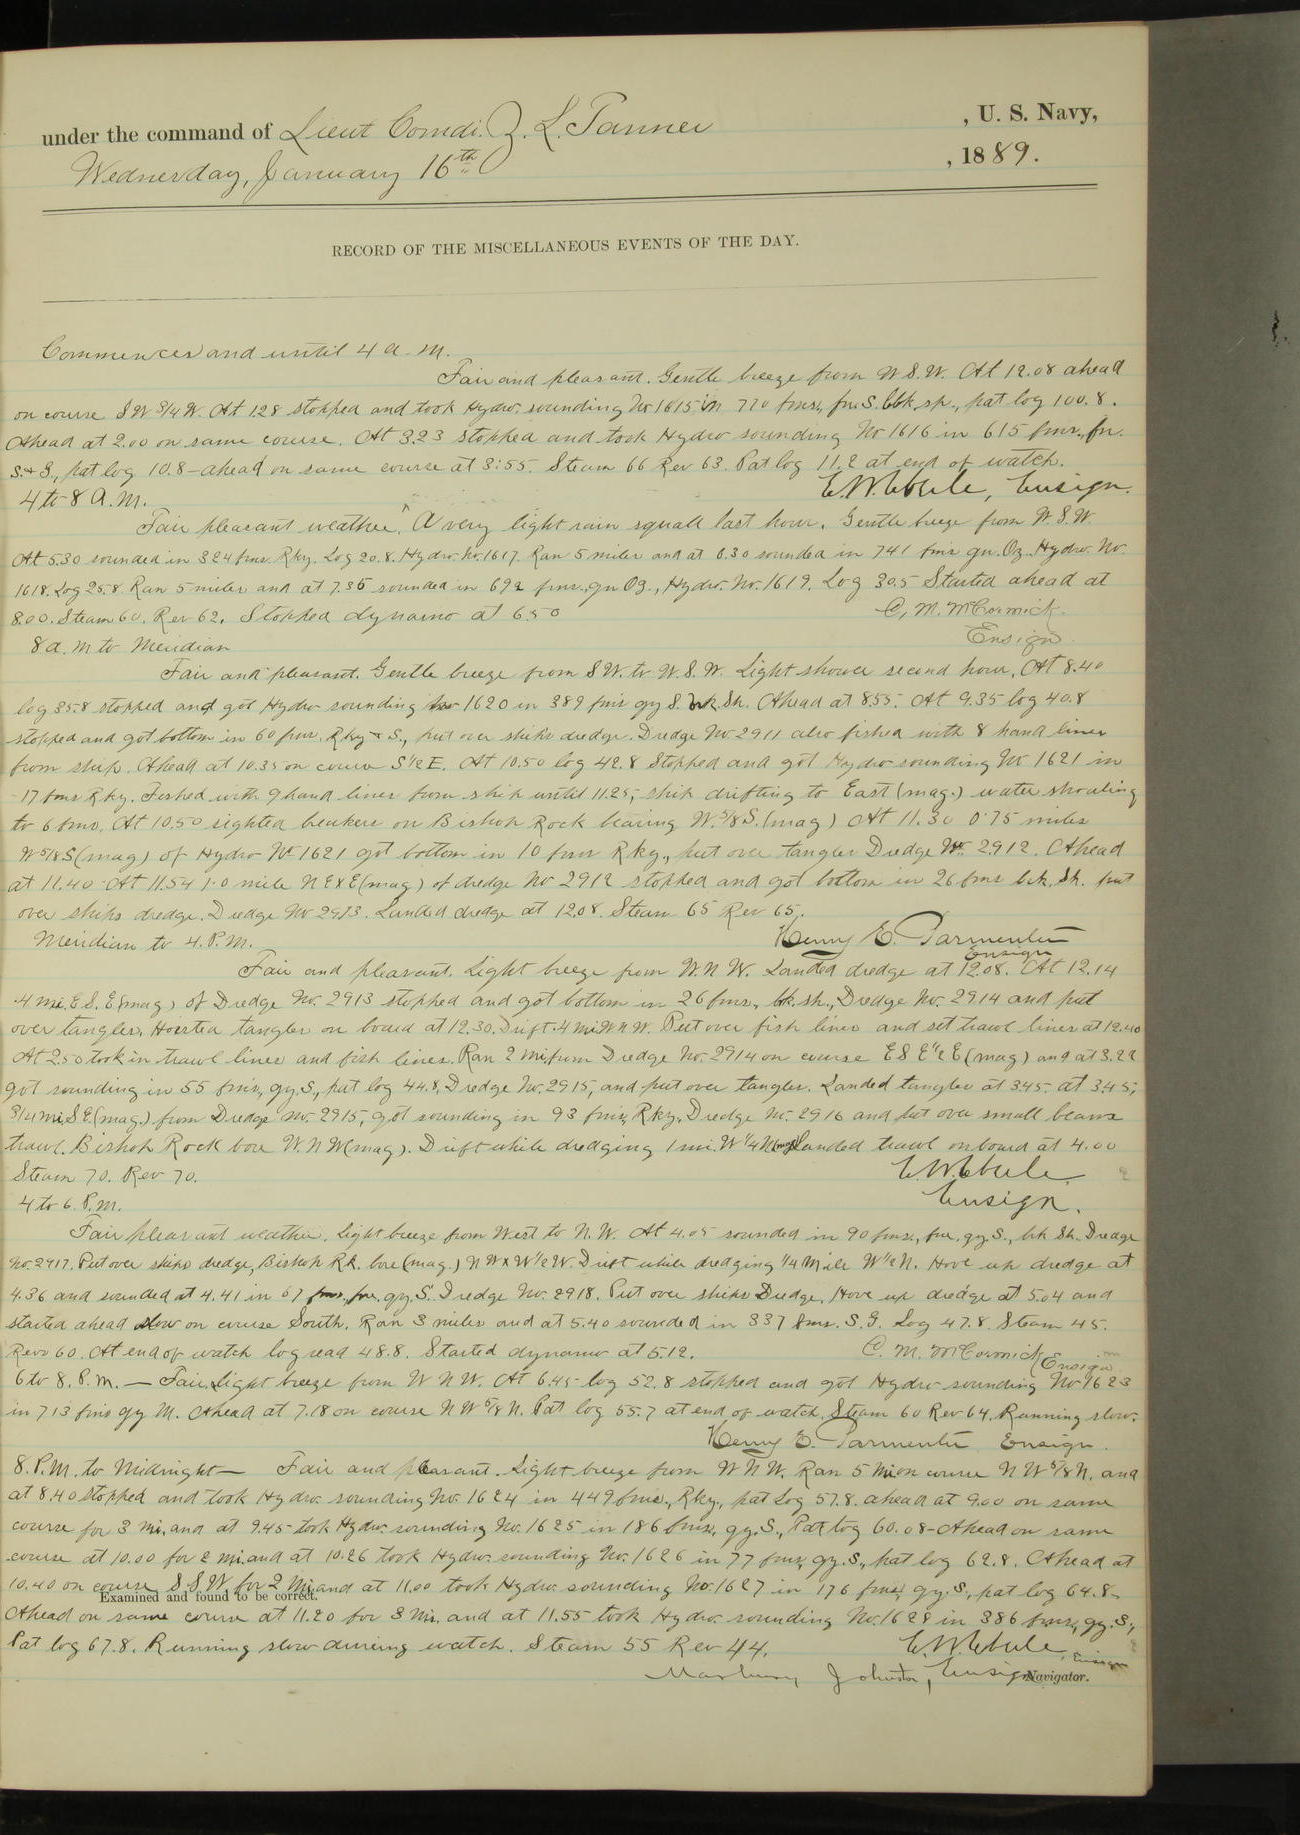 under the command of Lieut Comdr. Z. L. Tanner , U. S. Navy,
Wednesday, January 16th , 1889.
RECORD OF THE MISCELLANEOUS EVENTS OF THE DAY.
Commences and until 4 a. m.
Fair and pleasant. Gentle breeze from W.S.W. At 12.08 ahead
on course SW 3/4 W. At 1.28 stopped and took Hydro. sounding No 1615 in 770 fms, fne. S. blk. sp., pat log 100.8.
Ahead at 2.00 on same course. At 3.23 stopped and took Hydro sounding No 1616 in 615 fms., fn.
S. & G., pat log 10.8 - ahead on same course at 3:55. Steam 66 Rev 63. Pat log 11.2 at end of watch.
E.W. Eberle, Ensign.
4 to 8 A.M.
Fair pleasant weather. A very light rain squall last hour. Gentle breeze from W.S.W.
At 5.30 sounded in 324 fms. Rky. Log 20.8. Hydro. No. 1617. Ran 5 miles and at 6.30 sounded in 741 fms gn. Oz. Hydro. No.
1618. Log 25.8. Ran 5 miles and at 7.35 sounded in 692 fms. gn Oz., Hydro. No. 1619. Log 30.5 Started ahead at
8.00. Steam 60. Rev 62. Stopped dynamo at 6.50
C. M. McCormick.
Ensign
8 a. m to Meridian
Fair and pleasant. Gentle breeze from SW. to W.S.W. Light shower second hour. At 8.40
log 35.8 stopped and got Hydro sounding No 1620 in 389 fms gy S. brk Sh. Ahead at 8.55. At 9.35 log 40.8
stopped and got bottom in 60 fms. Rky & S., put over ships dredge. Dredge No 2911 also fished with 8 hand lines
from ship. Ahead at 10.35 on course S 1/2 E. At 10.50 log 42.8 Stopped and got Hydro sounding No 1621 in
17 fms Rky. Fished with 9 hand lines from ship until 11.25, ship drifting to East (mag.) water shoaling
to 6 fms. At 10.50 sighted breakers on Bishop Rock bearing W. 5/8 S. (mag) At 11.30 0.75 miles
W 5/8 S (mag) of Hydro No 1621 got bottom in 10 fms Rky., put over tangles Dredge No. 2912. Ahead
at 11.40. At 11.54 1.0 mile N E x E (mag) of dredge No 2912 stopped and got bottom in 26 fms brk. Sh. put
over ships dredge. Dredge No 2913. Landed dredge at 12.08. Steam 65 Rev 65.
Henry E. Parmenter
Ensign
Meridian to 4. P.M.
Fair and pleasant. Light breeze from W.N.W. Landed dredge at 12.08. At 12.14
.4 mi. E.S.E (mag) of Dredge No. 2913 stopped and got bottom in 26 fms., bk. sh., Dredge No. 2914 and put
over tangles, Hoisted tangles on board at 12.30. Drift .4 mi WNW. Put over fish lines and set trawl lines at 12.40
At 2.50 took in trawl lines and fish lines. Ran 2 mi from Dredge No. 2914 on course ESE 1/2 E (mag) and at 3.22
got sounding in 55 fms, gy. S., pat log 44.8, Dredge No. 2915, and put over tangles. Landed tangles at 3.45. at 3.45,
3/4 mi. S.E. (mag.) from Dredge No. 2915, got sounding in 93 fms, Rky. Dredge No. 2916 and put over small beam
trawl. Bishop Rock bore W.N.W (mag). Drift while dredging 1 mi. W 1/4 N (mag) Landed trawl on board at 4.00
Steam 70. Rev 70.
E.W. Eberle
Ensign.
4 to 6 P.M.
Fair pleasant weather. Light breeze from West to N.W. At 4.05 sounded in 90 fms., fne. gy. S., brk Sh. Dredge
No. 2917. Put over ships dredge, Bishop Rk. bore (mag.) N W x W 1/2 W. Drift while dredging 1/4 Mile W 1/2 N. Hove up dredge at
4.36 and sounded at 4.41 in 67 fms, fne. gy. S. Dredge No. 2918. Put over ships Dredge. Hove up dredge at 5.04 and
started ahead slow on course South. Ran 3 miles and at 5.40 sounded in 337 fms. S.G. Log 47.8. Steam 45.
Revs 60. At end of watch log read 48.8. Started dynamo at 5.12.
C. M. McCormick Ensign
6 to 8. P.M. — Fair. Light breeze from W N W. At 6.45 log 52.8 stopped and got Hydro sounding No 1623
in 713 fms gy M. Ahead at 7.18 on course N W 5/8 N. Pat log 55.7 at end of watch. Steam 60 Rev 64. Running slow.
Henry E. Parmenter Ensign.
8. P.M. to Midnight — Fair and pleasant. Light breeze from W N W. Ran 5 Mi on course N W 5/8 N. and
at 8.40 stopped and took Hydro. sounding No. 1624 in 449 fms., Rky., pat Log 57.8. ahead at 9.00 on same
course for 3 mi. and at 9.45 took Hydro. sounding No. 1625 in 186 fms, gy. S., Pat log 60.08 - Ahead on same
course at 10.00 for 2 mi. and at 10.26 took Hydro. sounding No. 1626 in 77 fms, gy. S., pat log 62.8. Ahead at
10.40 on course S.S.W. for 2 Mi. and at 11.00 took Hydro. sounding No. 1627 in 176 fms, gy. S., pat log 64.8.
Examined and found to be correct.
Ahead on same course at 11.20 for 3 Mi. and at 11.55 took Hydro. sounding No. 1628 in 386 fms, gy. S.,
Pat log 67.8. Running slow during watch. Steam 55 Rev 44.
E.W. Eberle, Ensign
Marbury Johnston, Ensign Navigator.